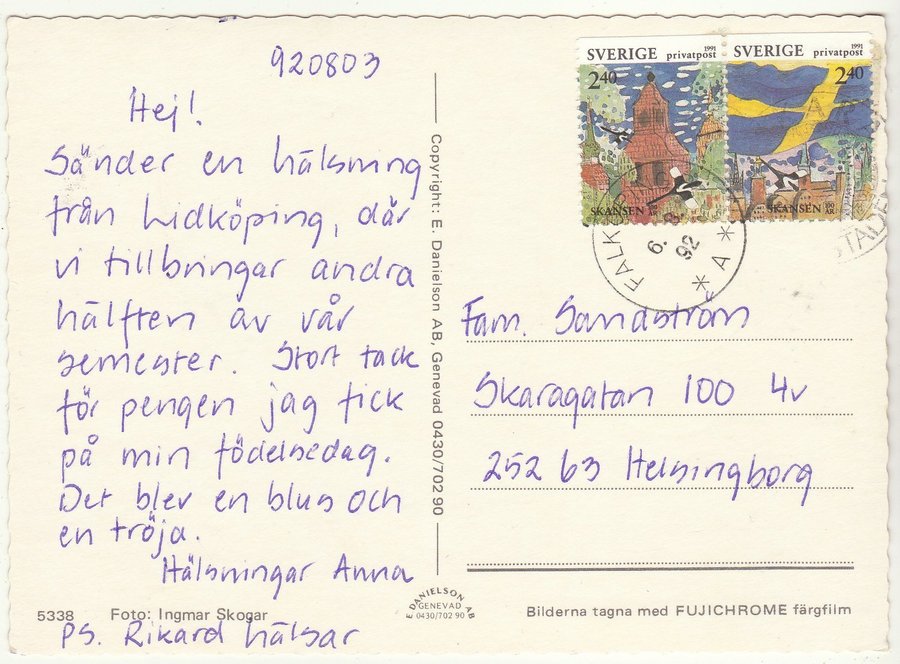 920803
Hej!
Sänder en hälsning
från Lidköping, där
vi tillbringar andra
hälften av vår
semester. Stort tack
för pengen jag fick
på min födelsedag.
Det blev en blus och
en tröja.
Hälsningar Anna
5338 Foto: Ingmar Skogar
PS. Rikard hälsar
Copyright: E. Danielson AB, Genevad 0430/702 90
E DANIELSON AB
GENEVAD
0430/702 90
SVERIGE 1991
privatpost
240
SKANSEN 100 ÅR
SVERIGE 1991
privatpost
240
SKANSEN 100 ÅR
FALK
6. 8
92
* A *
Fam. Sandström
Skaragatan 100 4v
252 63 Helsingborg
Bilderna tagna med FUJICHROME färgfilm